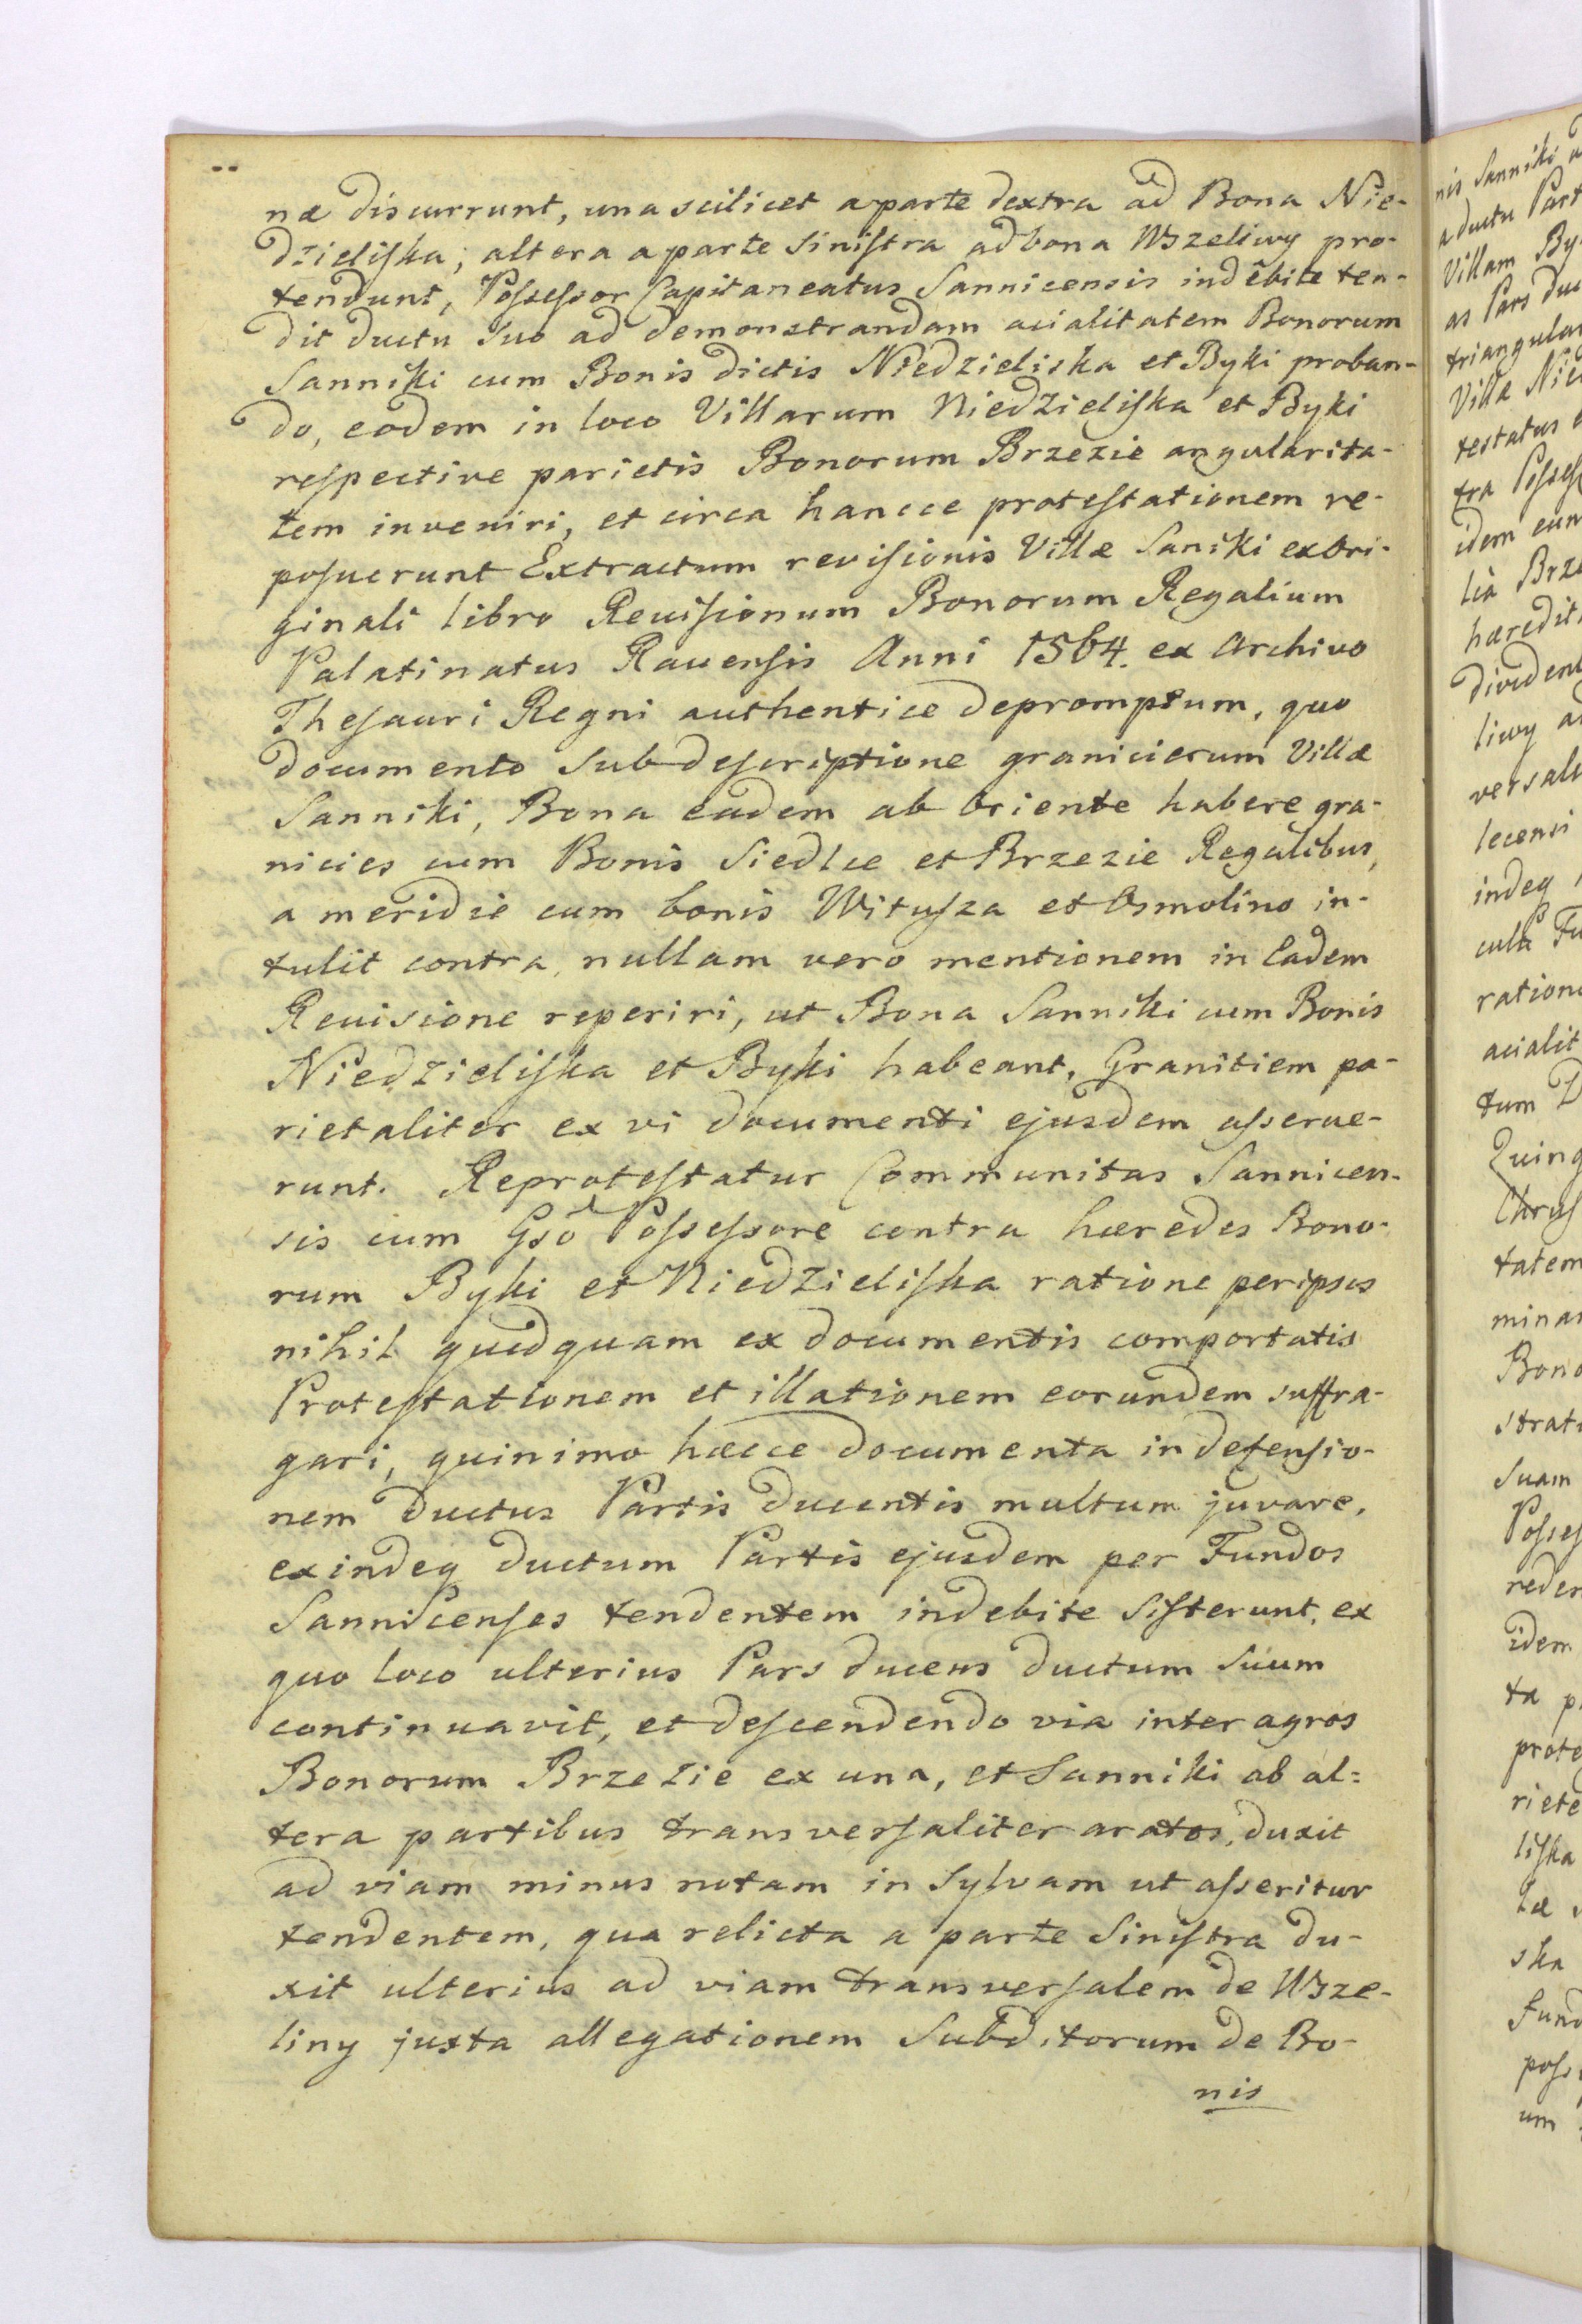 næ discurrunt, una scilicet a parte dextra ad Bona Nie-
dzieliska; altera a parte sinistra ad bona Wszeliwy pro-
tendunt, Possessor Capitaneatus Sannicensis indebite ten-
dit ductu suo ad demonstrandam acialitatem Bonorum
Sanniki cum Bonis dictis Niedzieliska et Byki proban-
do, eodem in loco Villarum Niedzieliska et Byki
respective parietis Bonorum Brzezie angularita-
tem inveniri, et circa hancce protestationem re-
posuerunt Extractum revisionis Villæ Saniki ex ori-
ginali libro Revisionum Bonorum Regalium
Palatinatus Ravensis Anni 1564. ex Archivo
Thesauri Regni authentice depromptum, quo
documento sub descriptione granicierum Villæ
Sanniki, Bona eadem ab oriente habere gra-
nicies cum Bonis Siedlce et Brzezie Regalibus,
a meridie cum bonis Witusza et Osmolino in-
tulit contra, nullam vero mentionem in Eadem
Revisione reperiri, ut Bona Sanniki cum Bonis
Niedzieliska et Byki habeant, Granitiem pa-
rietaliter ex vi documenti ejusdem asserue-
runt. Reprotestatur Communitas Sannicen-
sis cum Gso Possessore contra hæredes Bono-
rum Byki et Niedzieliska ratione per ipsos
nihil quidquam ex documentis comportatis
Protestationem et illationem eorundem suffra-
gari, quinimo hæcce documenta in defensio-
nem ductus Partis ducentis multum juvare,
exindeq ductum Partis ejusdem per Fundos
Sannicenses tendentem indebite sisterunt, ex
quo loco ulterius Pars ducens ductum suum
continuavit, et descendendo via inter agros
Bonorum Brzezie ex una, et Sanniki ab al=
tera partibus transversaliter aratos, duxit
ad viam minus notam in Sylvam ut asseritur
tendentem, qua relicta a parte sinistra du-
xit ulterius ad viam transversalem de Wsze-
liny juxta allegationem Subditorum de Bo-
nis
nis Sanniki
a ductu Part
Villam By
as Pars duc
triangular
Villæ Nie
testatus
tra Posses
idem eum
lia Brze
hæredit
dividen
liwy a
versal
lecensi
indeq
culte Fu
ratione
acialit
tum D
Quing
Chrus
tatem
minas
Bono
strat
suam
Posses
reder
idem
ta p
prote
riete
liska
læ
ska
fund
poss
um